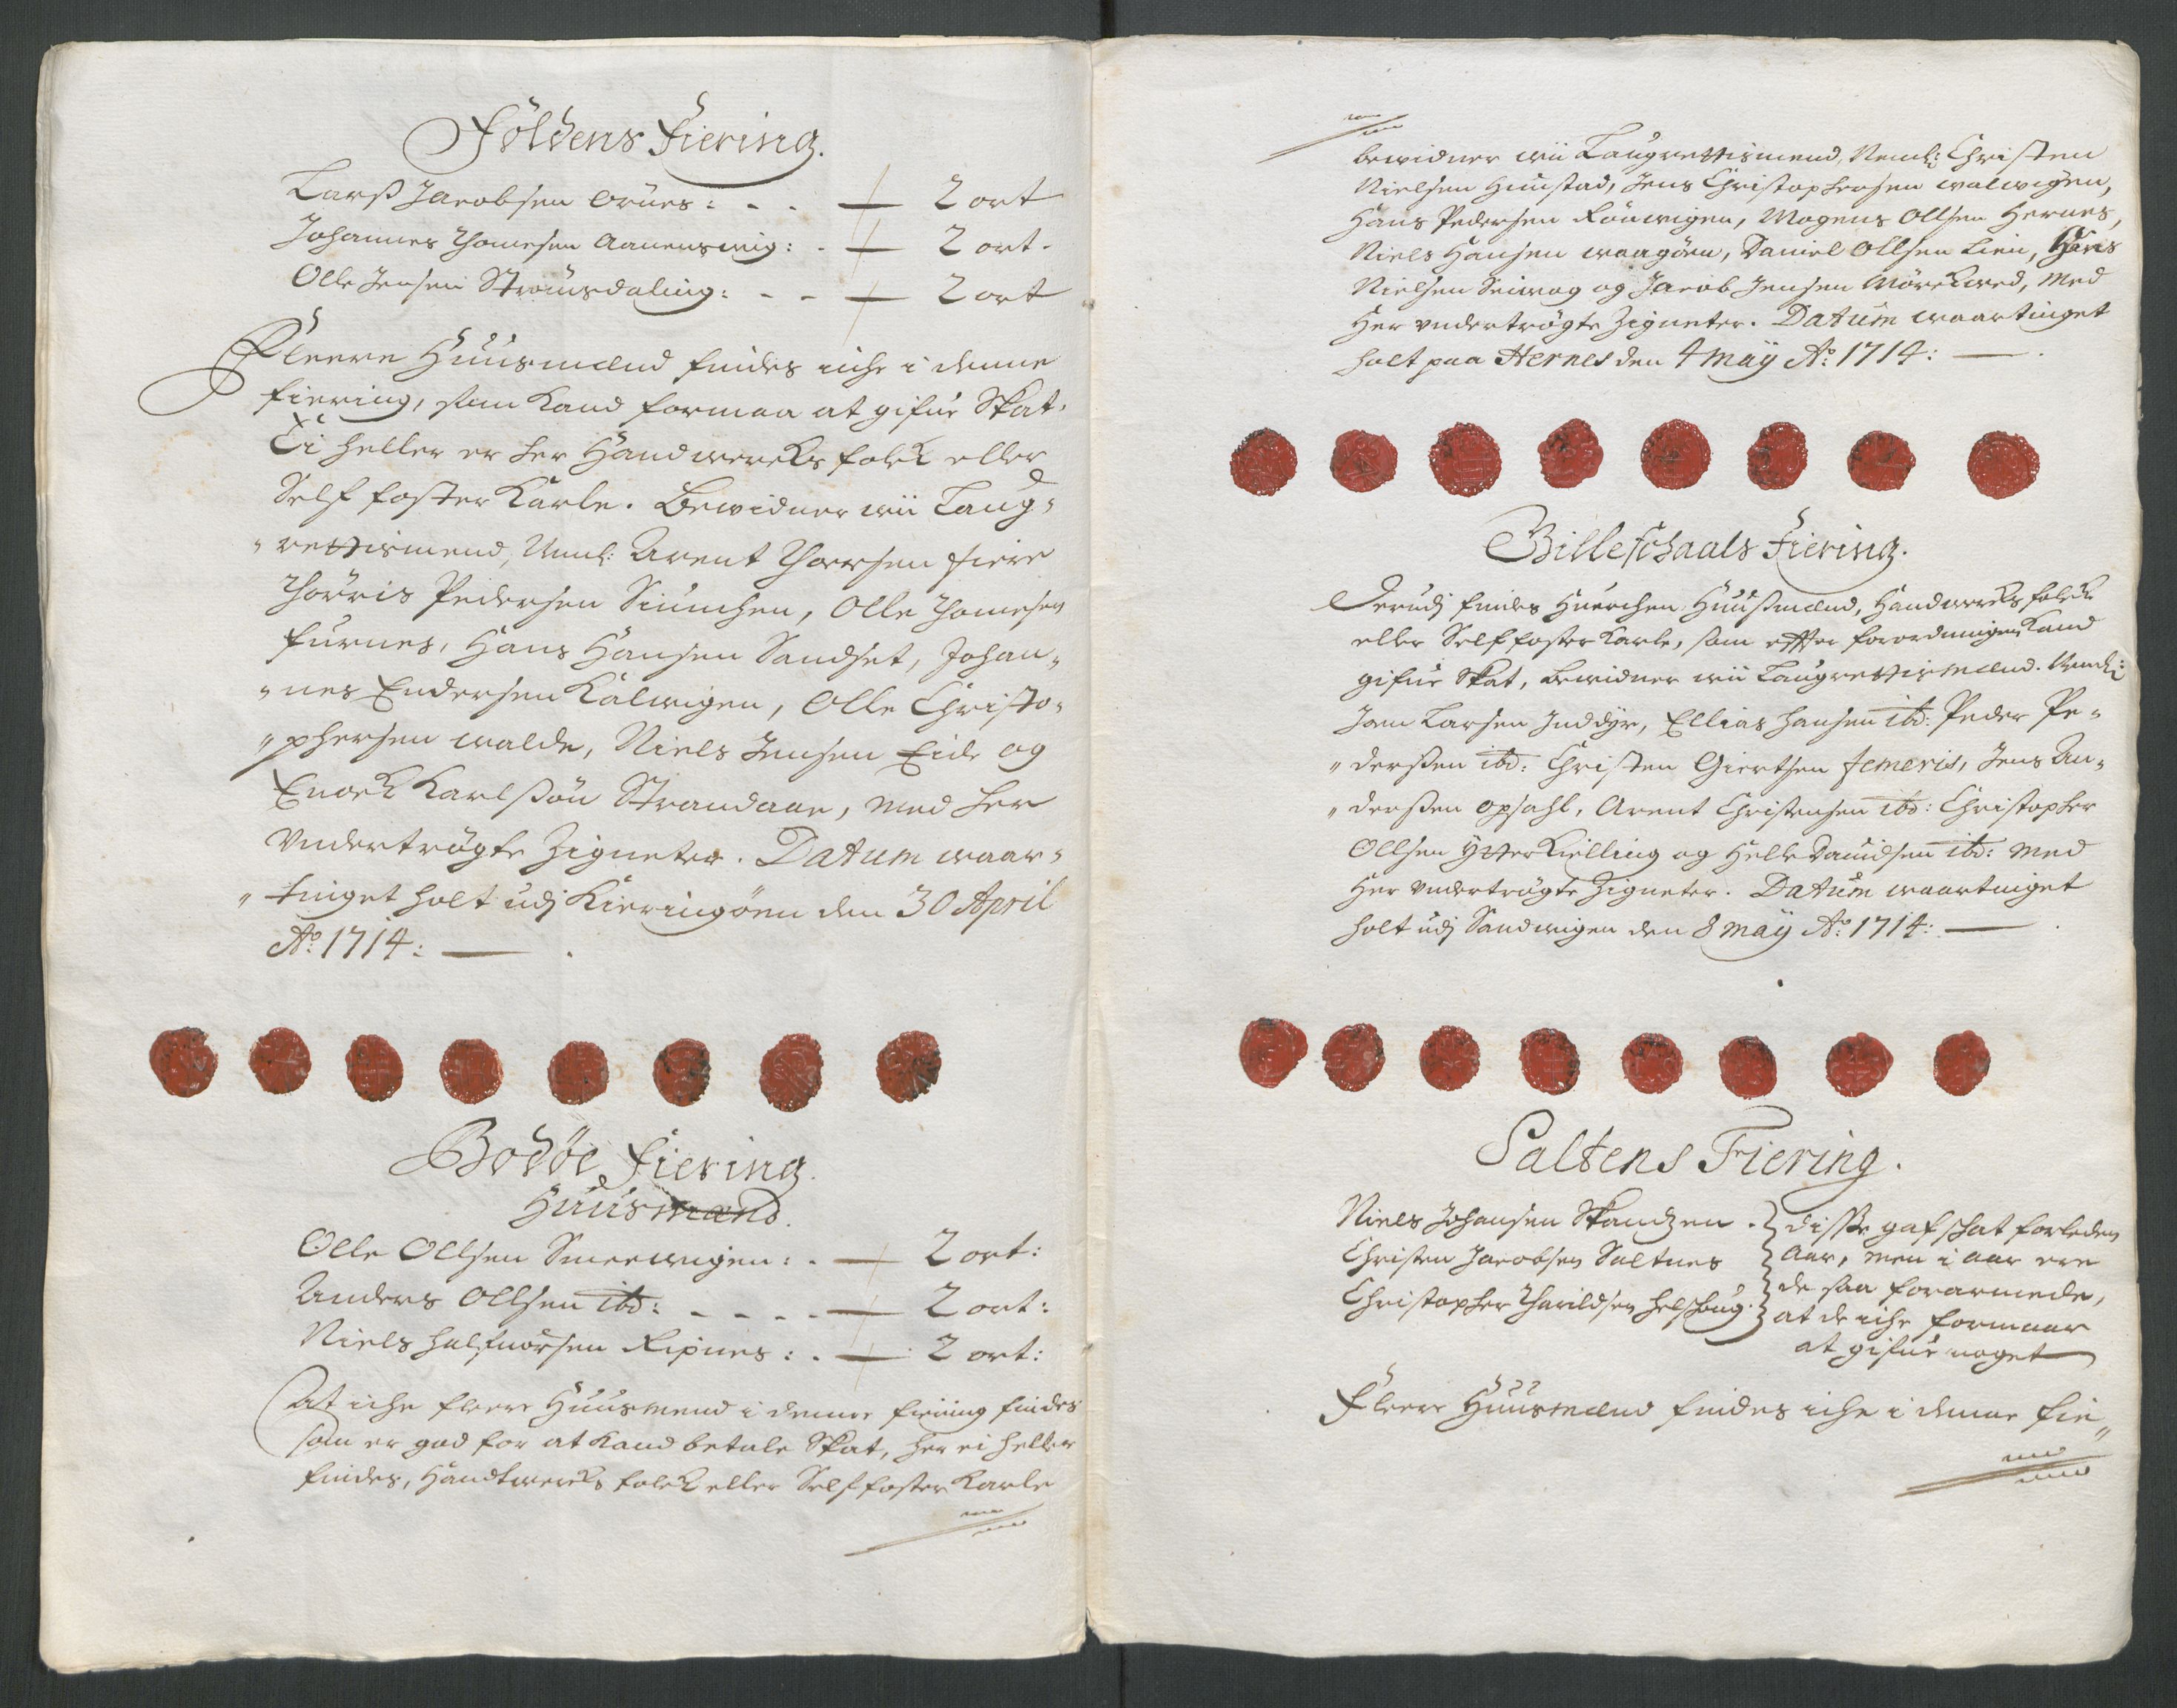 Foldens Fiering.
Larss Jacobsen Brues: - - — 2 ort
Johannes Thomesen Aanenswig: - — 2 ort.
Olle Jensen Strømsdaling: - - — 2 ort
Fleere Huusmænd findes iche i denne
fiering, som kand formaa at gifue Skat.
Ei heller er her Handwercks folck eller
Self foster Karle. Bewidner wii Laug-
"rettismend, Neml: Arent Thorsen fiere
Thorris Pedersen, Olle Thomesen
furnes, Hans Hansen Sandset, Johan-
"nes Endersen Kalwigen, Olle Christo-
"phersen walde, Niels Jensen Eide og
Enoch Karlssøn Strandaae, med her
Undertrøgte Zigneter. Datum waar-
"tinget holt udj Kieringøen den 30 April
Ao: 1714: —
Bodøe Fiering.
Huusmænd.
Olle Ollsen Sneewigen: - — 2 ort:
Anders Ollsen ibd: - - - - — 2 ort:
Niels Halfuorsen Ripnes: - — 2 ort:
At iche fleere Huusmend i denne fiering findes
som er god for at kand betale Skat, her ei heller
findes, Handtwercks folck eller Self foster Karle
bewidner wii Laugrettismend, Neml: Christen
Nielsen Hunstad, Jens Christophersen walwigen,
Hans Pedersen Rønwigen, Mogens Ollsen Hernes,
Niels Hansen waagøen, Daniel Ollsen Lien, Hans
Nielsen Seiwog og Jacob Jensen Mørckwed, med
Her undertrøgte Zigneter. Datum waartinget
holt paa Hernes den 4 Maÿ Ao: 1714: —
Billeschaals Fiering.
Derudj findes Huerchen Huusmænd, Handwercks folck
eller Self foster Karle, som efter forordningen Kand
gifue Skat, bewidner wii Laugrettismænd. Neml:
Jon Larsen Inddÿr, Ellias Hansen ibd: Peder Pe-
"derssen ibd: Christen Giertsen femeris, Jens An-
"derssen opsahl, Arent Christensen ibd: Christopher
Ollsen Ytter Kielling og Helle Dauidsen ibd: med
Her undertrøgte Zigneter. Datum waartinget
holt udj Sandwigen den 8 maÿ Ao: 1714: —
Saltens Fiering.
Niels Johansen Skandzen . } disse gaf schat forleden
Christen Jacobsen Saltnes } Aar, men i aar ere
Christopher Tharildsen Helschoug } de saa forarmede,
at de iche formaar
at gifue noget
Fleere Huusmænd findes iche i denne fie-